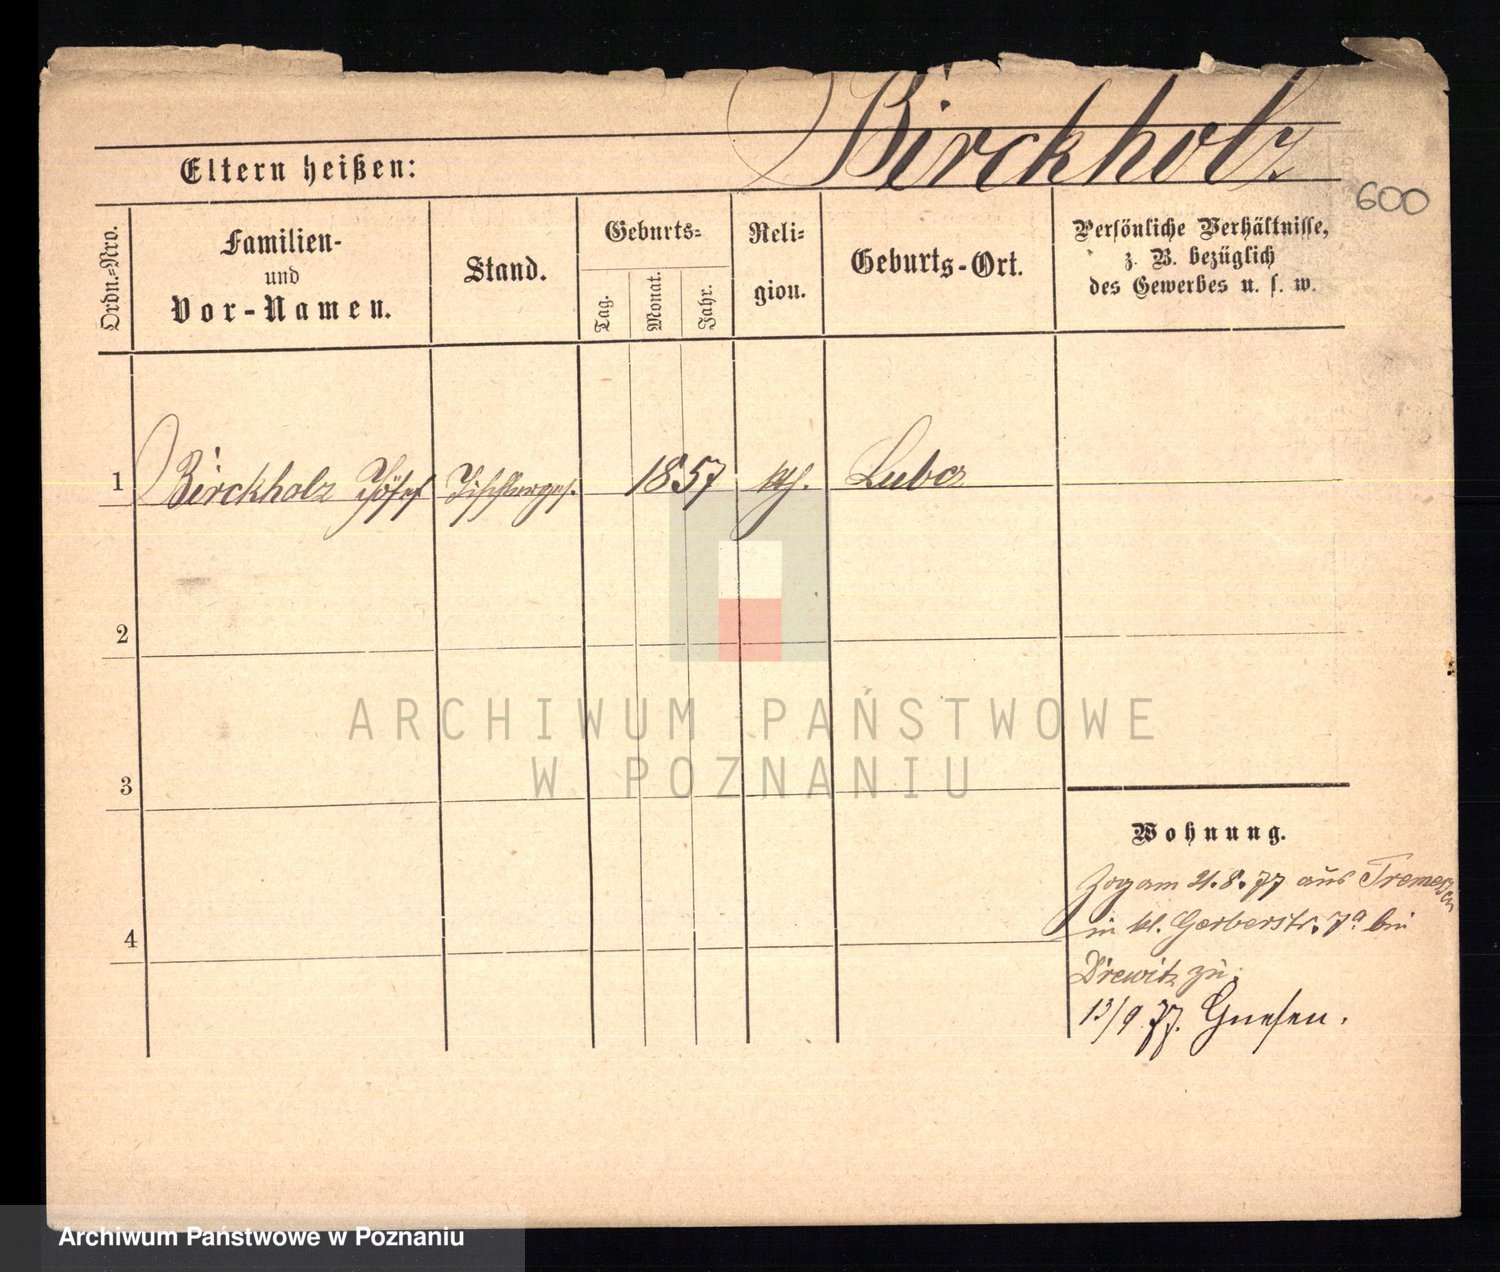 Birckholz
Eltern heißen:
600
Ordn.=Nro.
Familien-
und
Vor-Namen.
Stand.
Geburts=
Tag.
Monat.
Jahr.
Reli-
gion.
Geburts-Ort.
Persönliche Verhältnisse,
z. B. bezüglich
des Gewerbes u. s. w.
1 Birckholz Josef Tischlerges. 1857 kth. Luba
2
3
4
Wohnung.
Zog am 21.8.77 aus Tremessen
in kl. Gerberstr. 7a bei
Drewitz zu.
13/9 77. Gnesen.
ARCHIWUM PAŃSTWOWE
W POZNANIU
Archiwum Państwowe w Poznaniu